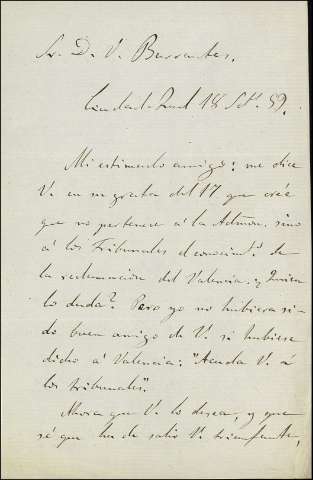 Sr. D. V. Barrantes.
Ciudad-Real 18 Set.e 59.
Mi estimado amigo: me dice
V. en su grata del 17 que cree
que no pertenece á la Admon. sino
á los Tribunales el conocimto. de
la reclamacion del Valencia. ¿Quien
lo duda? Pero yo no hubiera si-
do buen amigo de V. si hubiese
dicho á Valencia: "Acuda V. á
los tribunales".
Ahora que V. lo desea, y que
sé que ha de salir V. triunfante,